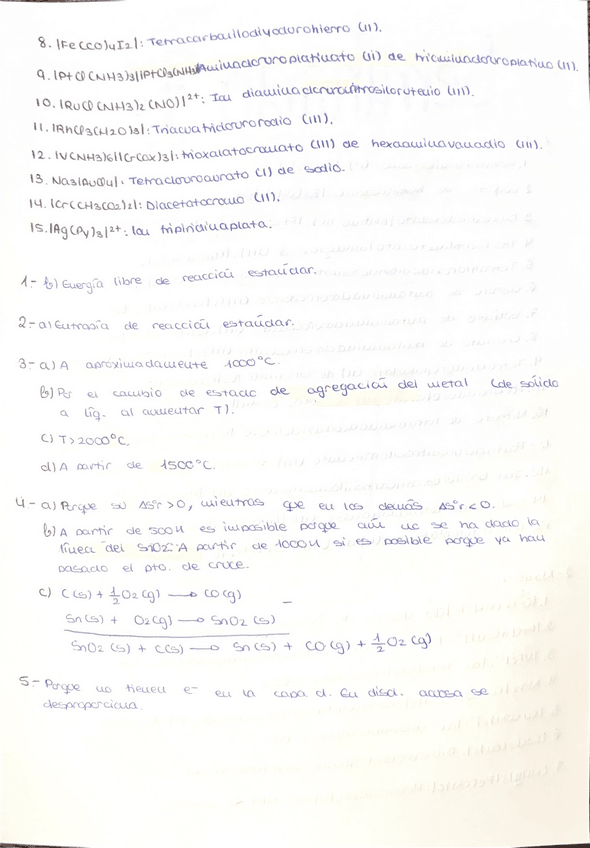 8. |Fe(CO)4I2|: Tetracarbonilodiyodurohierro (II).
9. |PtCl(NH3)3||PtCl3(NH3)|: Aminaclororoplatinato (II) de triaminacloruroplatino (II).
10. |RuCl(NH3)2(NO)|2+: Ion diaminacloruronitrosilorutenio (III).
11. |RhCl3(H2O)3|: Triacuatriclorurorodio (III).
12. |V(NH3)6||Cr(ox)3|: trioxalatocromato (III) de hexaaminavanadio (III).
13. Na3|AuCl4|: Tetracloruroaurato (I) de sodio.
14. |Cr(CH3CO2)2|: Diacetatocromo (II).
15. |Ag(Py)3|2+: Ion tripiridinaplata.
1.- b) Energía libre de reacción estándar.
2.- a) Entropía de reacción estándar.
3.- a) A aproximadamente 1000°C.
b) Por el cambio de estado de agregación del metal (de sólido
a líq. al aumentar T).
c) T>2000°C.
d) A partir de 1500°C.
4.- a) Porque su ΔS°r>0, mientras que en los demás ΔS°r<0.
b) A partir de 500K es imposible porque aún no se ha dado la
línea del SnO2. A partir de 1000K si es posible porque ya han
pasado el pto. de cruce.
c) C(s) + 1/2 O2(g) → CO(g)
–
Sn(s) + O2(g) → SnO2(s)
SnO2(s) + C(s) → Sn(s) + CO(g) + 1/2 O2(g)
5.- Porque no tienen e- en la capa d. En disol. acuosa se
desproporciona.